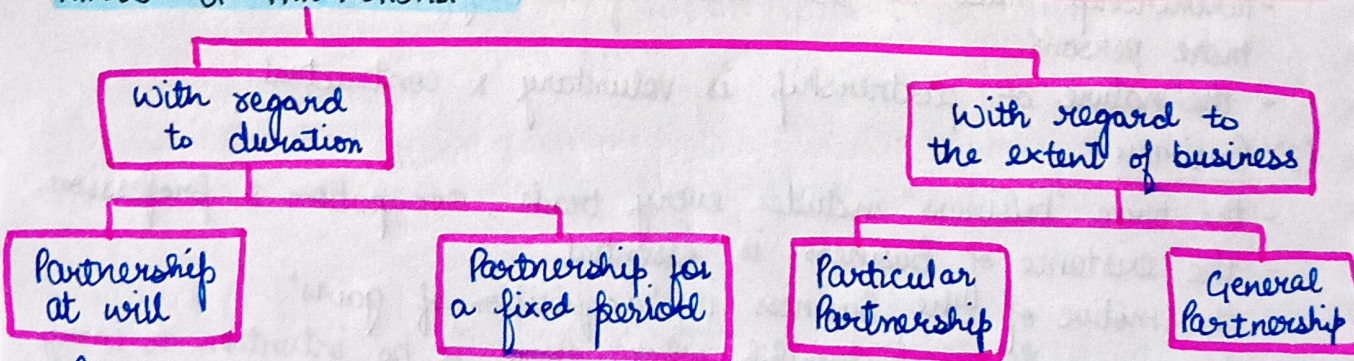 With regard
to duration
With regard to
the extent of business
Partnership
at will
Partnership for
a fixed period
Particular
Partnership
General
Partnership